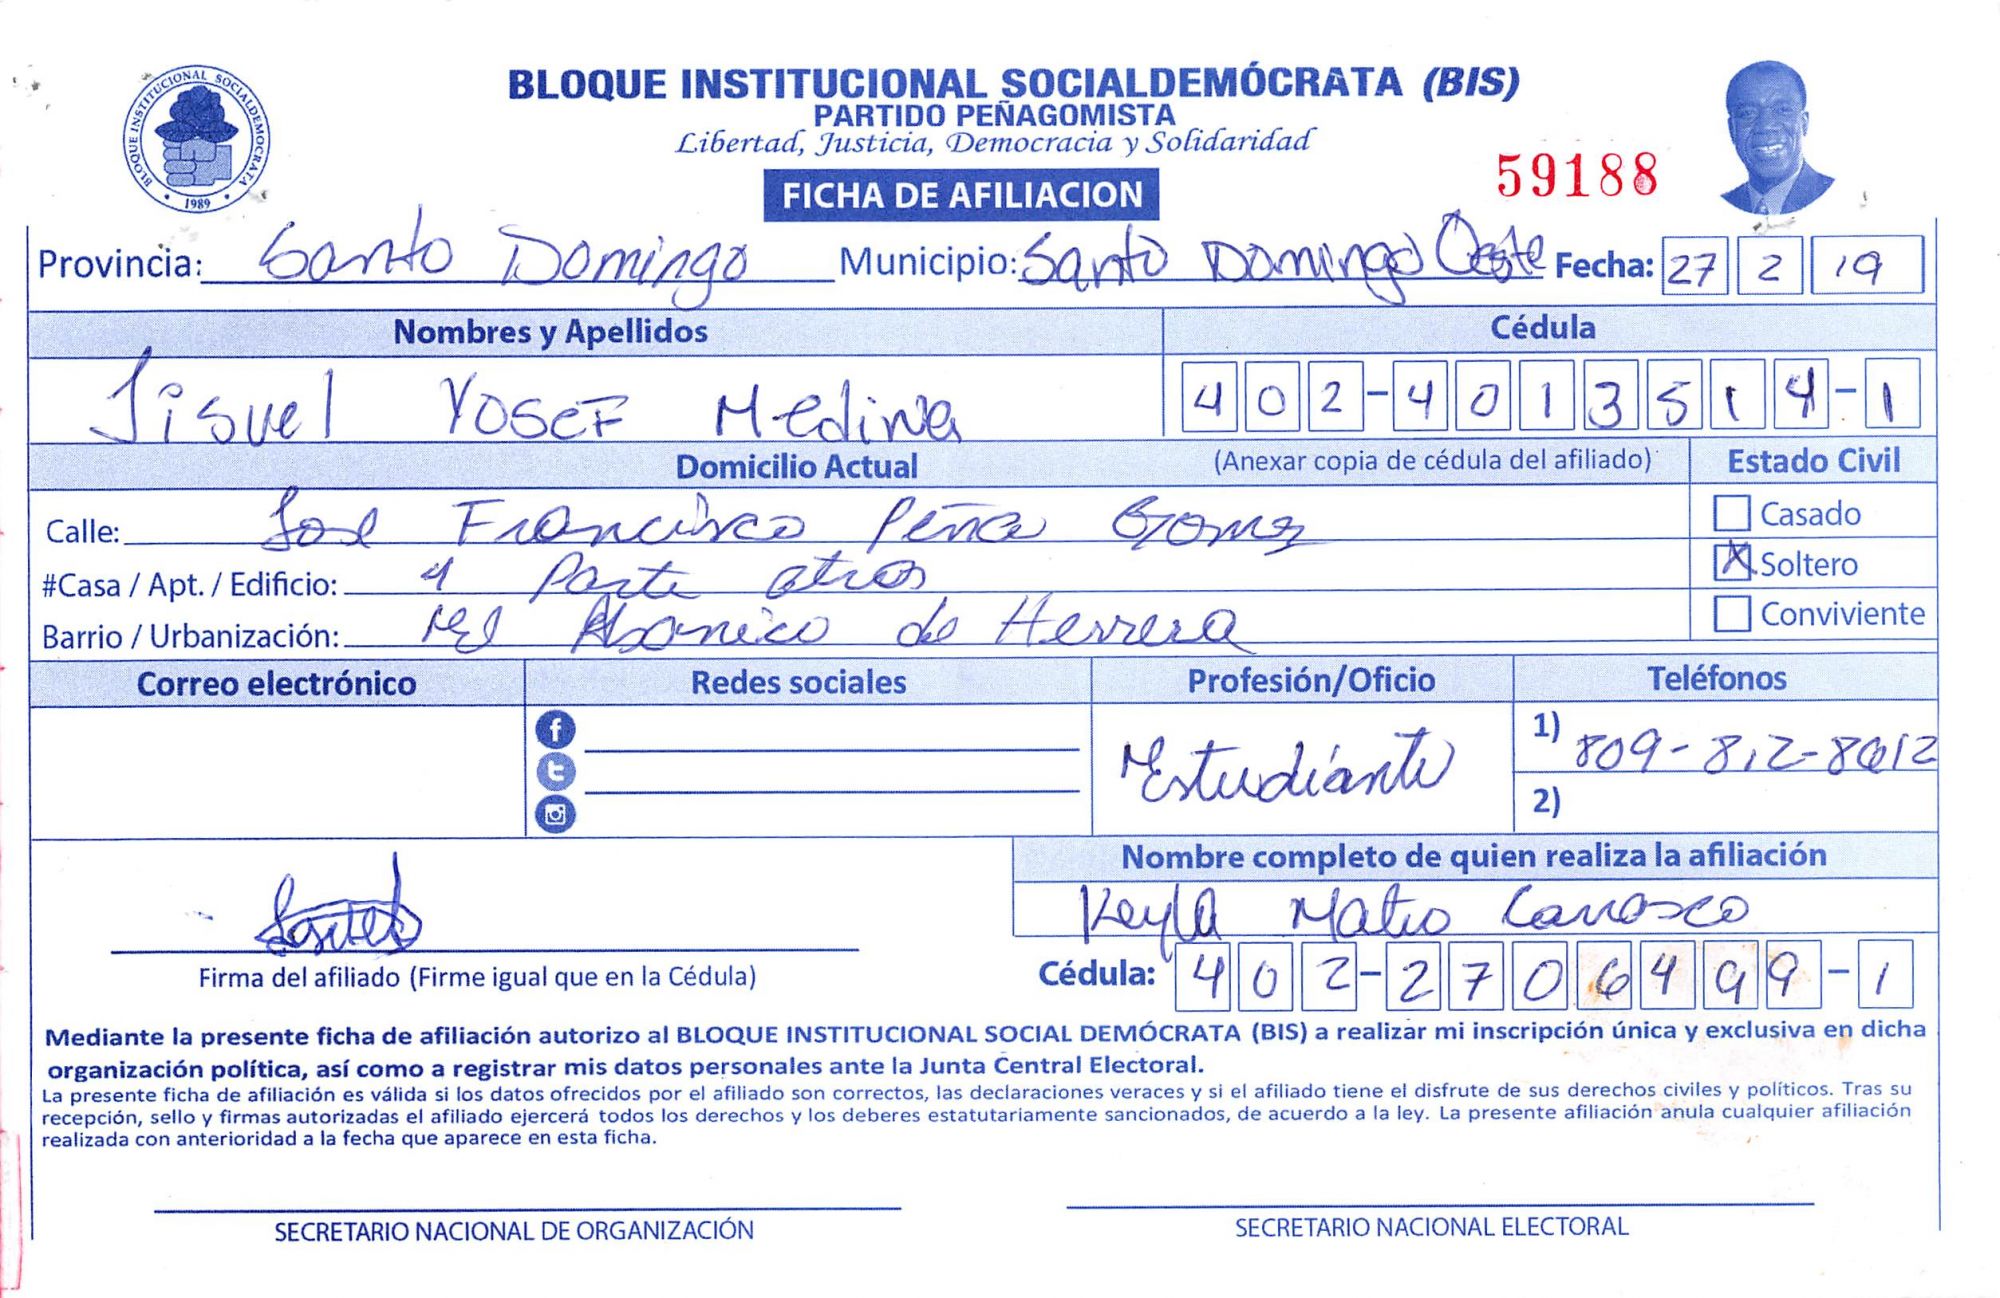 BLOQUE INSTITUCIONAL SOCIALDEMÓCRATA (BIS)
PARTIDO PEÑAGOMISTA
Libertad, Justicia, Democracia y Solidaridad
BLOQUE INSTITUCIONAL SOCIALDEMOCRATA
1989
59188
FICHA DE AFILIACION
Provincia: Santo Domingo Municipio: Santo Domingo Oeste Fecha: 27 2 19
Nombres y Apellidos Cédula
Jisuel Yosef Medina 402-4013514-1
Domicilio Actual (Anexar copia de cédula del afiliado) Estado Civil
Calle: Jose Francisco Peña Gomez Casado
#Casa / Apt. / Edificio: 4 Parte atras X Soltero
Barrio / Urbanización: El Abanico de Herrera Conviviente
Correo electrónico Redes sociales Profesión/Oficio Teléfonos
Estudiante 1) 809-812-8612
2)
Nombre completo de quien realiza la afiliación
Keyla Mateo Carrasco
Firma del afiliado (Firme igual que en la Cédula) Cédula: 402-2706499-1
Mediante la presente ficha de afiliación autorizo al BLOQUE INSTITUCIONAL SOCIAL DEMÓCRATA (BIS) a realizar mi inscripción única y exclusiva en dicha
organización política, así como a registrar mis datos personales ante la Junta Central Electoral.
La presente ficha de afiliación es válida si los datos ofrecidos por el afiliado son correctos, las declaraciones veraces y si el afiliado tiene el disfrute de sus derechos civiles y políticos. Tras su
recepción, sello y firmas autorizadas el afiliado ejercerá todos los derechos y los deberes estatutariamente sancionados, de acuerdo a la ley. La presente afiliación anula cualquier afiliación
realizada con anterioridad a la fecha que aparece en esta ficha.
SECRETARIO NACIONAL DE ORGANIZACIÓN SECRETARIO NACIONAL ELECTORAL